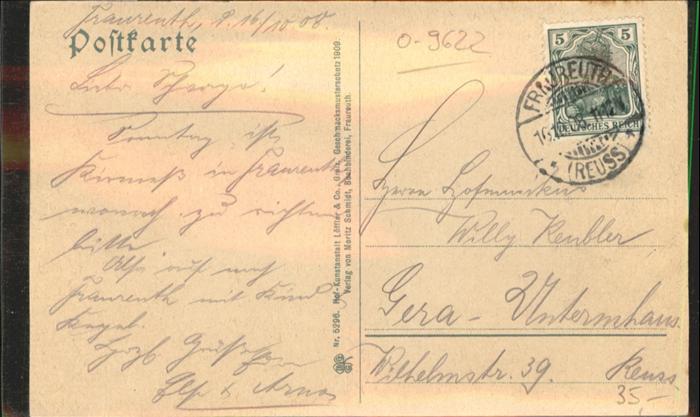 Fraureuth, d. 16/10 08.
Postkarte
Sonntag ist
Kirmeß in Fraureuth
wonach zu richten
bitte.
Also auf nach
Fraureuth mit Kind
Kegel.
Else & Arno
Nr. 5296. Hof-Kunstanstalt Löffler & Co., Greiz. Geschmacksmusterschutz 1909.
Verlag von Moritz Schmidt, Buchbinderei, Fraureuth.
0-9622
5 5
DEUTSCHES REICH
FRAUREUTH
(REUSS)
Herrn
Willy Keubler
Gera-Untermhaus.
Wilhelmstr. 39. Reuss
35,-